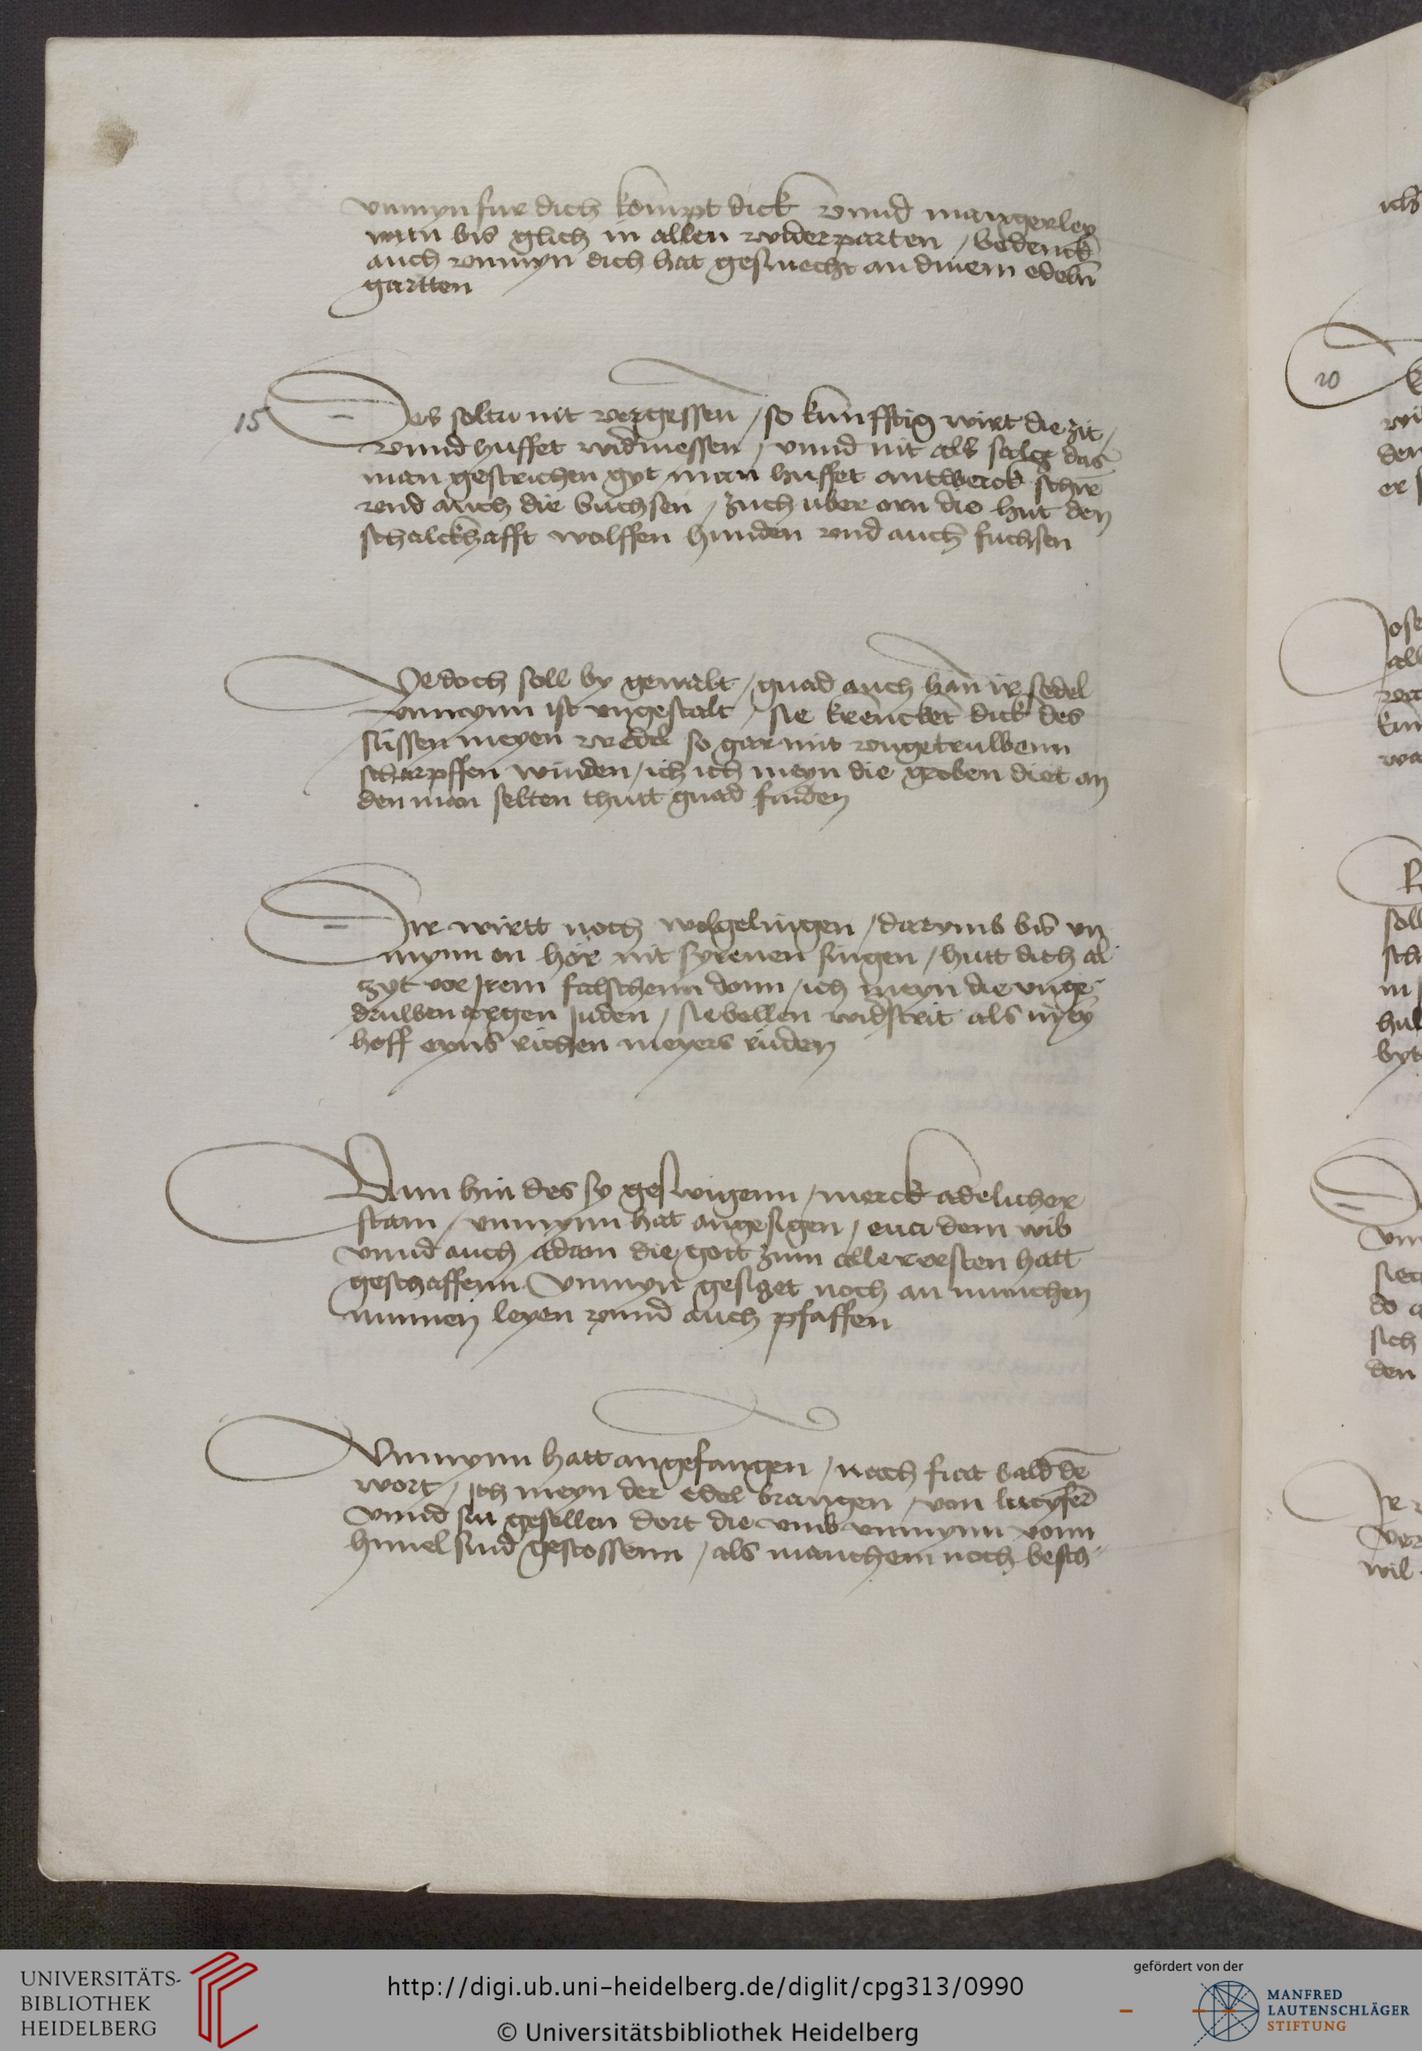 vnmyn fur dich kompt dick vnnd mangerley
bis glich in allen widerparten / bedenck
auch vnmyn dich hat geswecht an dinem edeln̄
gartten
15
Des soltu nit vergessen / so kunfftig wirt die zit /
vnnd huffet widmessen / vnnd nit als saltz das
man gestrichen gyt man huffet antwerck schir̄
vnd auch die buchsen / zuch uber orn die hut den
schalckhafft wolffen hunden vnd auch fuchsen
Yedoch soll by gewalt / gnad auch han ir sedel
vnmynn ist vngestalt / sie krencket dick des
sussen meyen wedel so gar mit vngetruwenn
scharpffen winden / ich ich meyn die groben diet an
den man selten thutt gnad finden
Dir wirtt noch wolgelingen / darvmb bis vn
mynn on hor nit syrenen singen / hutt dich al
zyt vor Irem falschenn donn / ich meyn die vnge
druwen argen Juden / sie bellen widstrit als
hoff eyns richen meyers ruden
Dann hin des sy geswigenn / merck adelicher
stam / vnmynn hat angesigen / eua dem wib
vnnd auch adam die gott zum allerersten hatt
geschaffenn Vnmyn gesiget noch an munchen
nunnen leyen vnnd auch pfaffen
Vnmynn hatt angefangen / nach fiat bald de͞
wort / Ich meyn der edel brangen / von lucyfer
vnnd sin gesellen dort die vmb vnmynn vonn
himel sind gestossenn / als manchem noch besch
20
UNIVERSITÄTS-
BIBLIOTHEK
HEIDELBERG
http://digi.ub.uni-heidelberg.de/diglit/cpg313/0990
© Universitätsbibliothek Heidelberg
gefördert von der
MANFRED
LAUTENSCHLÄGER
STIFTUNG